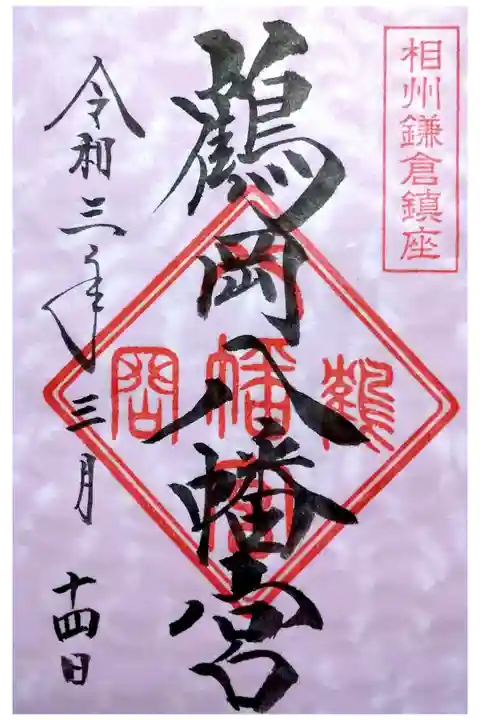 相州鎌倉鎮座
鶴岡八幡宮
令和三年三月十四日